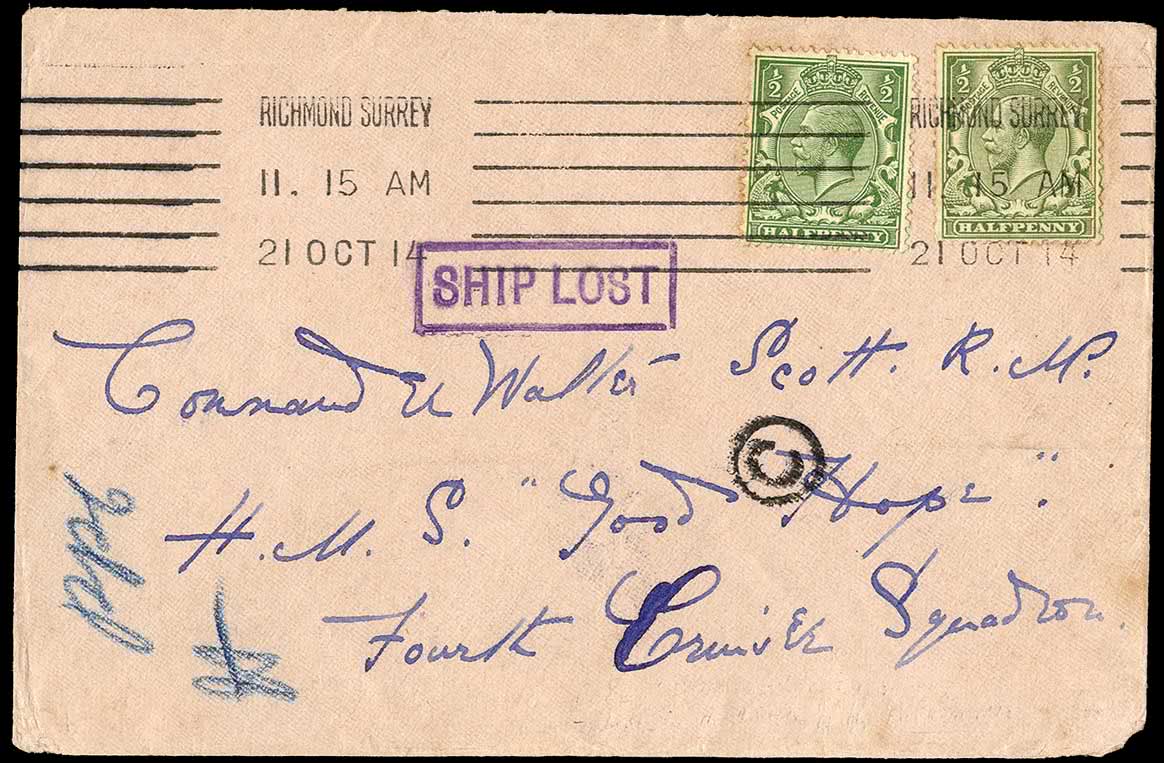 ½ ½ ½ ½
POSTAGE REVENUE POSTAGE REVENUE
RICHMOND SURREY RICHMOND SURREY
11. 15 AM 11. 15 AM
21 OCT 14 21 OCT 14
HALFPENNY HALFPENNY
SHIP LOST
Commander Walter Scott. R.N.
C
H.M.S. "Good Hope".
Fourth Cruiser Squadron.